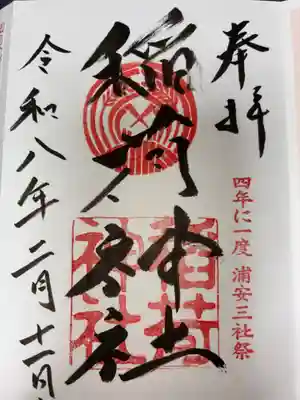 奉拝
四年に一度 浦安三社祭
稲荷神社
稲荷
神社
令和八年二月十一日